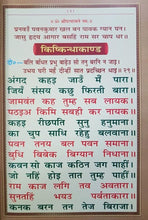 प्रनवउँ पवनकुमार खल बन पावक ग्यान घन।
जासु हृदय आगार बसहिं राम सर चाप धर॥
किष्किन्धाकाण्ड
दो०— बलि बाँधत प्रभु बाढ़ेउ सो तनु बरनि न जाइ।
उभय घरी महँ दीन्हीं सात प्रदच्छिन धाइ॥२९॥
अंगद कहइ जाउँ मैं पारा
जियँ संसय कछु फिरती बारा।
जामवंत कह तुम्ह सब लायक
पठइअ किमि सबही कर नायक
कहइ रीछपति सुनु हनुमाना
का चुप साधि रहेहु बलवाना
पवन तनय बल पवन समाना
बुधि बिबेक बिग्यान निधाना
कवन सो काज कठिन जग माहीं
जो नहिं होइ तात तुम्ह पाहीं
राम काज लगि तव अवतारा
सुनतहिं भयउ पर्बताकारा
कनक बरन तन तेज बिराजा